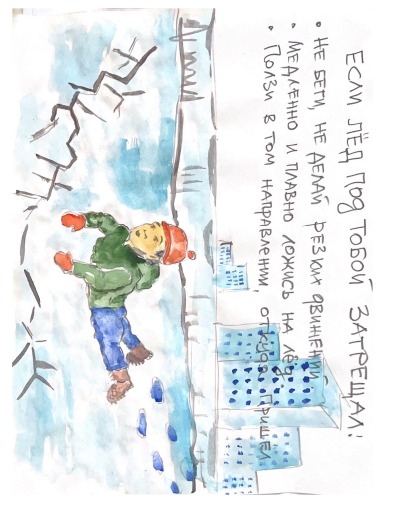 ЕСЛИ ЛЁД ПОД ТОБОЙ ЗАТРЕЩАЛ:
• НЕ БЕГИ, НЕ ДЕЛАЙ РЕЗКИХ ДВИЖЕНИЙ
• МЕДЛЕННО И ПЛАВНО ЛОЖИСЬ НА ЛЁД
• ПОЛЗИ В ТОМ НАПРАВЛЕНИИ, ОТКУДА ПРИШЕЛ